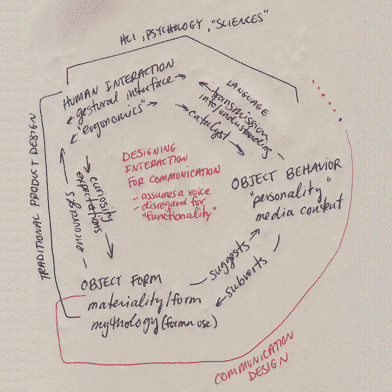 HCI, PSYCHOLOGY, "SCIENCES"
HUMAN INTERACTION
gestural interface
"ergonomics"
LANGUAGE
transmission
info/understanding
catalyst
TRADITIONAL PRODUCT DESIGN
curiosity
expectations
DESIGNING
INTERACTION
FOR COMMUNICATION
- assumes a voice
- disregard for
"functionality"
OBJECT BEHAVIOR
"personality"
media content
OBJECT FORM
materiality/form
mythology (former use)
suggests
subverts
COMMUNICATION
DESIGN